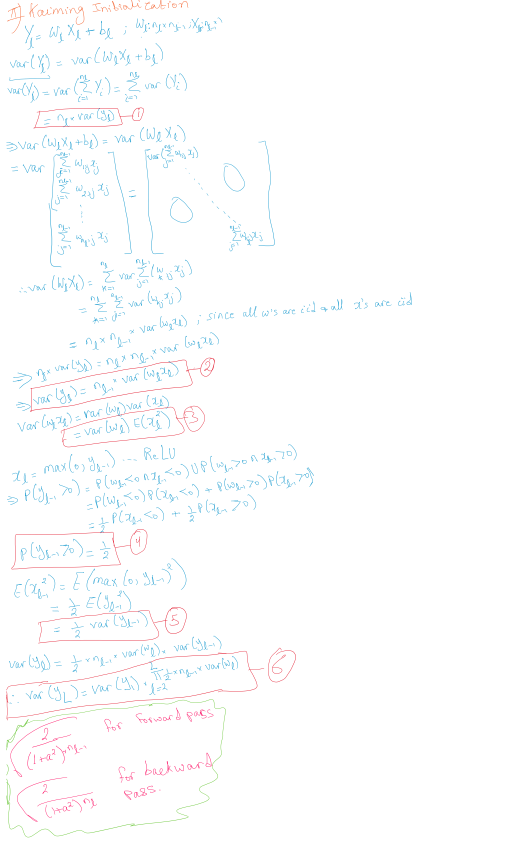 II) Kaiming Initialization
Y_l = W_l X_l + b_l ; W_l: n_l × n_{l-1}, X_l: n_{l-1} × 1
var(Y_l) = var(W_l X_l + b_l)
var(Y_l) = var(∑_{i=1}^{n_l} Y_i) = ∑_{i=1}^{n_l} var(Y_i)
= n_l × var(y_l) — ①
⇒ var(W_l X_l + b_l) = var(W_l X_l)
= var [ ∑_{j=1}^{n_{l-1}} w_{1j} x_j ; ∑_{j=1}^{n_{l-1}} w_{2j} x_j ; ⋮ ; ∑_{j=1}^{n_{l-1}} w_{n_l j} x_j ] = [ var(∑_{j=1}^{n_{l-1}} w_{1j} x_j) ⋱ 0 ; 0 ∑_{j=1}^{n_{l-1}} w_{n_l j} x_j ]
∴ var(W_l X_l) = ∑_{k=1}^{n_l} var ∑_{j=1}^{n_{l-1}} (w_{kj} x_j)
= ∑_{k=1}^{n_l} ∑_{j=1}^{n_{l-1}} var(w_{kj} x_j)
= n_l × n_{l-1} × var(w_l x_l) ; since all w's are iid & all x's are iid
⇒ n_l × var(y_l) = n_l × n_{l-1} × var(w_l x_l)
⇒ var(y_l) = n_{l-1} × var(w_l x_l) — ②
var(w_l x_l) = var(w_l) var(x_l)
= var(w_l) E(x_l²) — ③
x_l = max(0, y_{l-1}) ... ReLU
⇒ P(y_{l-1} > 0) = P(w_{l-1} < 0 ∩ x_{l-1} < 0) ∪ P(w_{l-1} > 0 ∩ x_{l-1} > 0)
= P(w_{l-1} < 0) P(x_{l-1} < 0) + P(w_{l-1} > 0) P(x_{l-1} > 0)
= ½ P(x_{l-1} < 0) + ½ P(x_{l-1} > 0)
P(y_{l-1} > 0) = ½ — ④
E(x_{l-1}²) = E(max(0, y_{l-1})²)
= ½ E(y_{l-1}²)
= ½ var(y_{l-1}) — ⑤
var(y_l) = ½ × n_{l-1} × var(w_l) × var(y_{l-1})
∴ var(y_L) = var(y_1) · ∏_{l=2}^{L} ½ × n_{l-1} × var(w_l) — ⑥
√(2 / ((1+a²) × n_{l-1})) for forward pass
√(2 / ((1+a²) n_l)) for backward
pass.